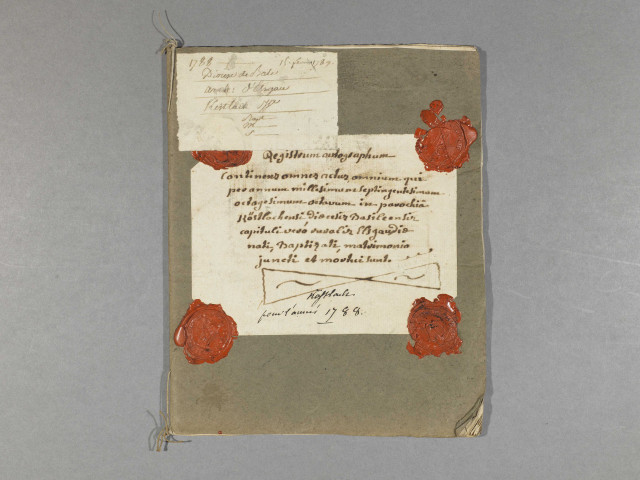 1788
15 février 1789
Diocese de Basle
Registrum autographum
Continens omnes actus omnium qui
per annum millesimum septingentesimum
octogesimum octavum in parochiâ
Köstlacensi Dioecesis Basileensis
capituli verò ruralis Elsgaudiae
nati, Baptizati, matrimonio
juncti et mortui sunt
Köstlach
pour l'année 1788.